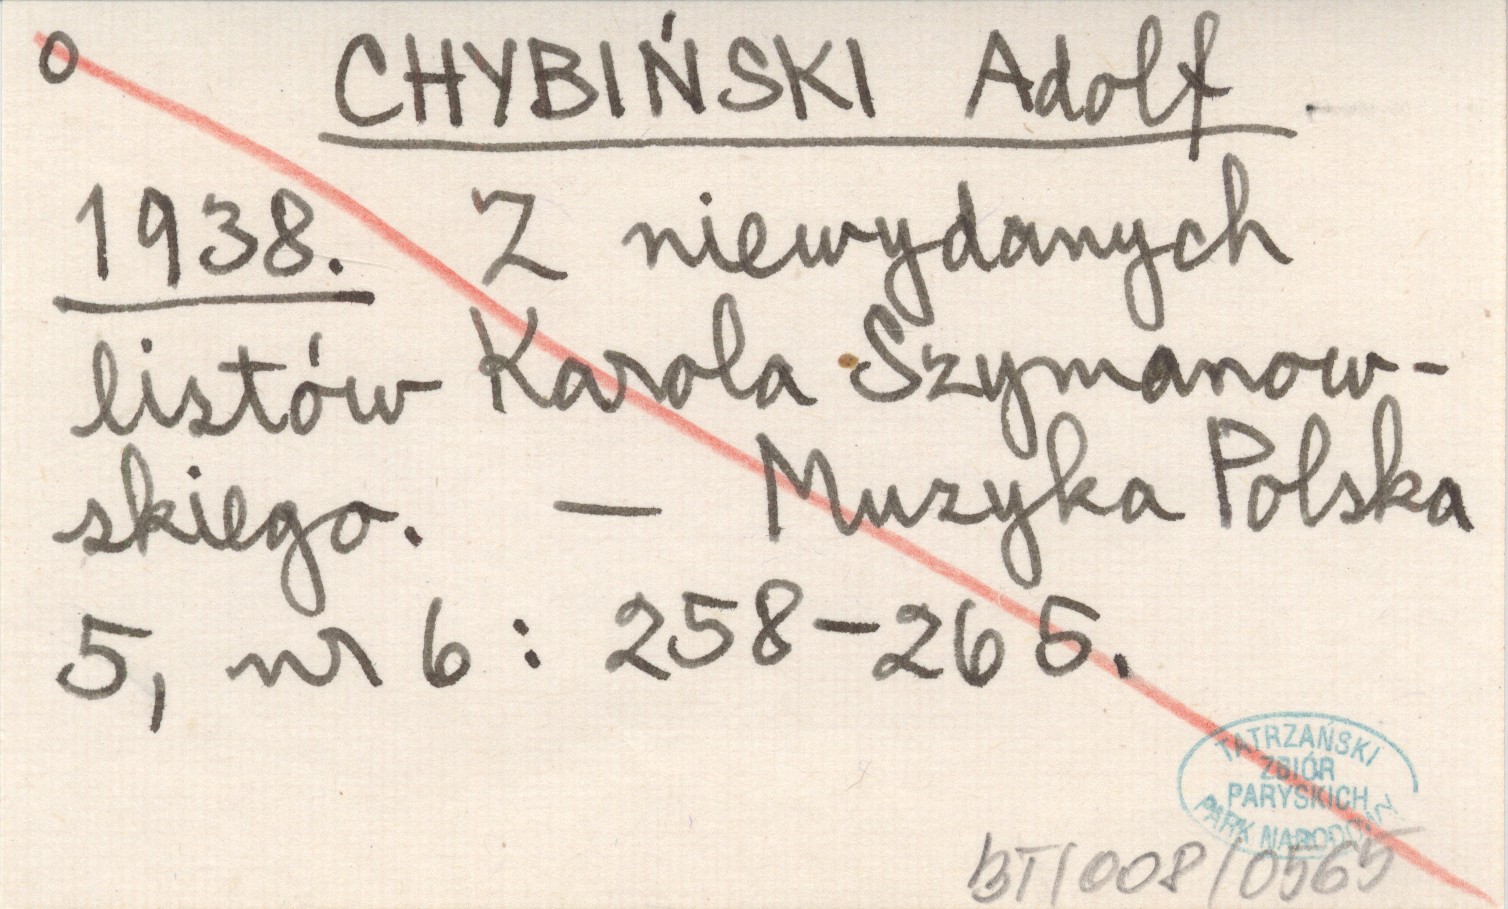 o CHYBIŃSKI Adolf
1938. Z niewydanych
listów Karola Szymanow-
skiego. — Muzyka Polska
5, nr 6 : 258-265.
TATRZAŃSKI
ZBIÓR
PARYSKICH
PARK NARODOWY
BT/008/0565